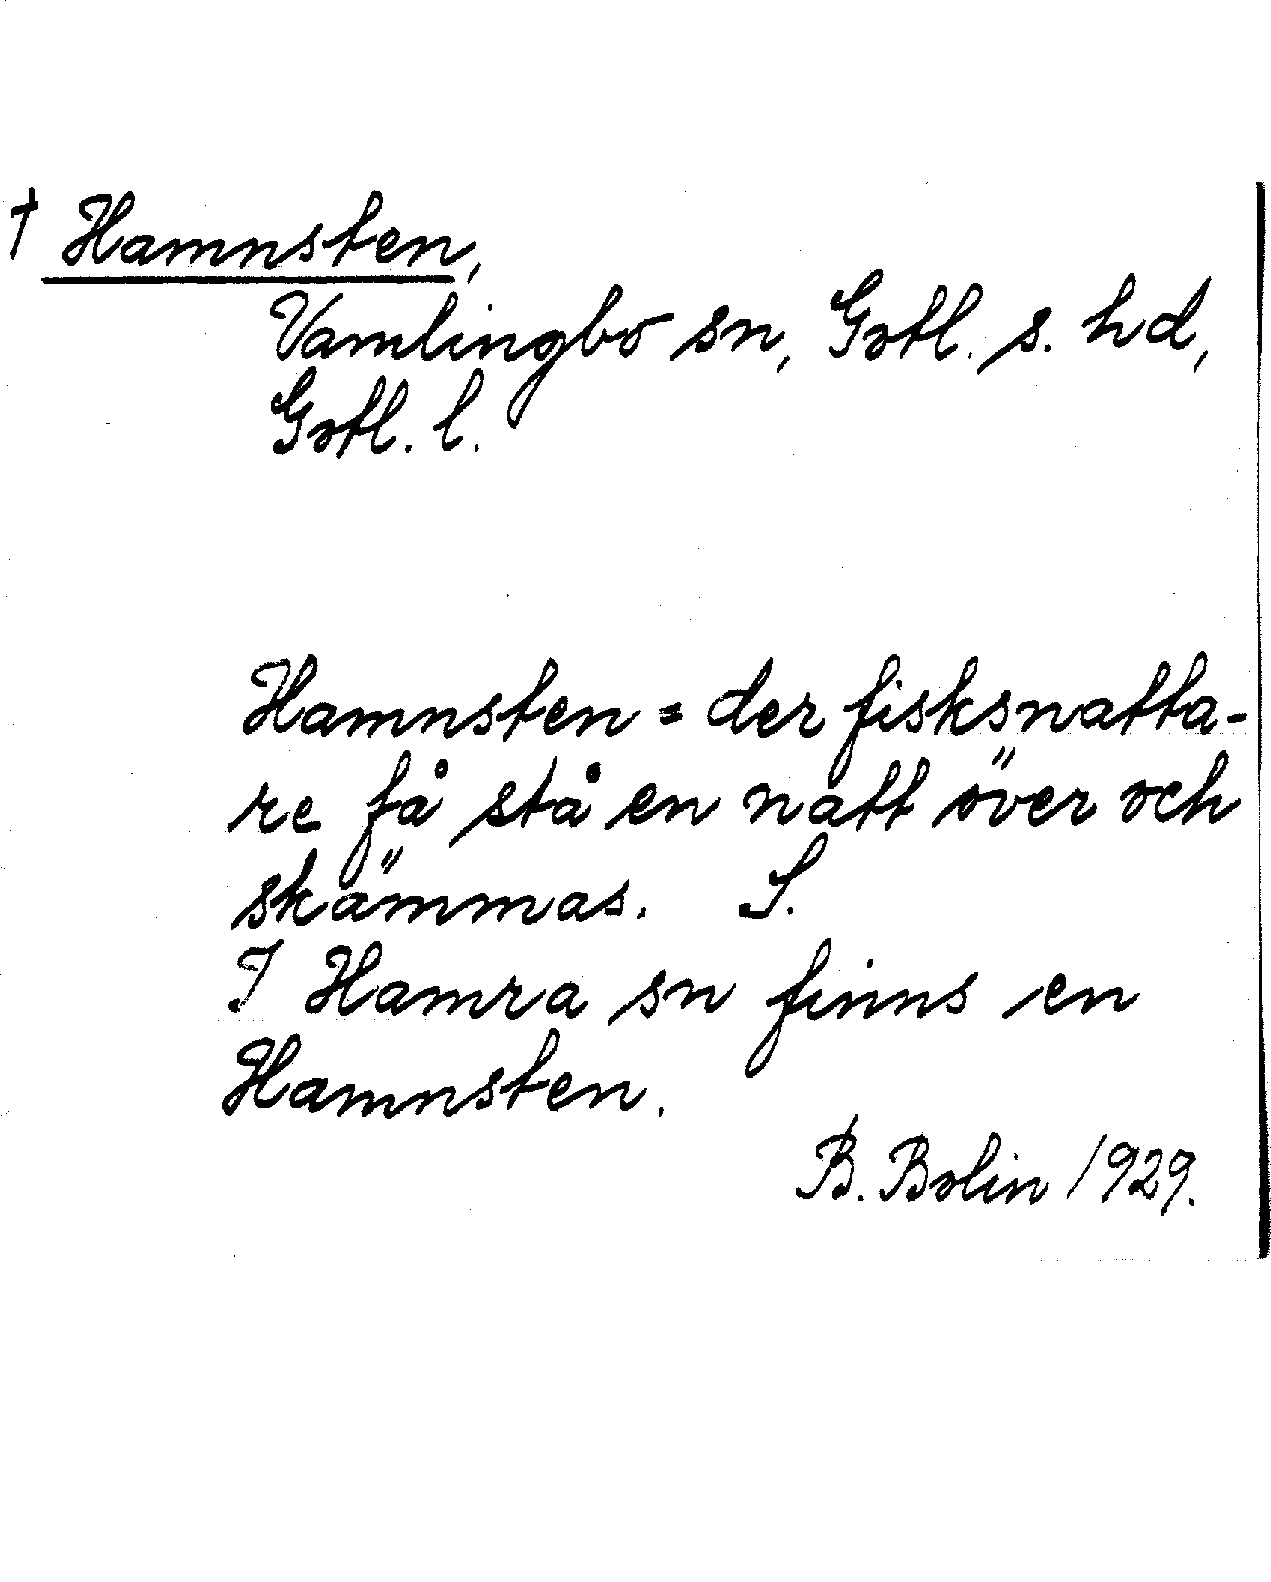 † Hamnsten,
Vamlingbo sn, Gotl. s. hd,
Gotl. l.
Hamnsten = der fisksnatta-
re få stå en natt över och
skämmas. S.
I Hamra sn finns en
Hamnsten.
B. Bolin 1929.